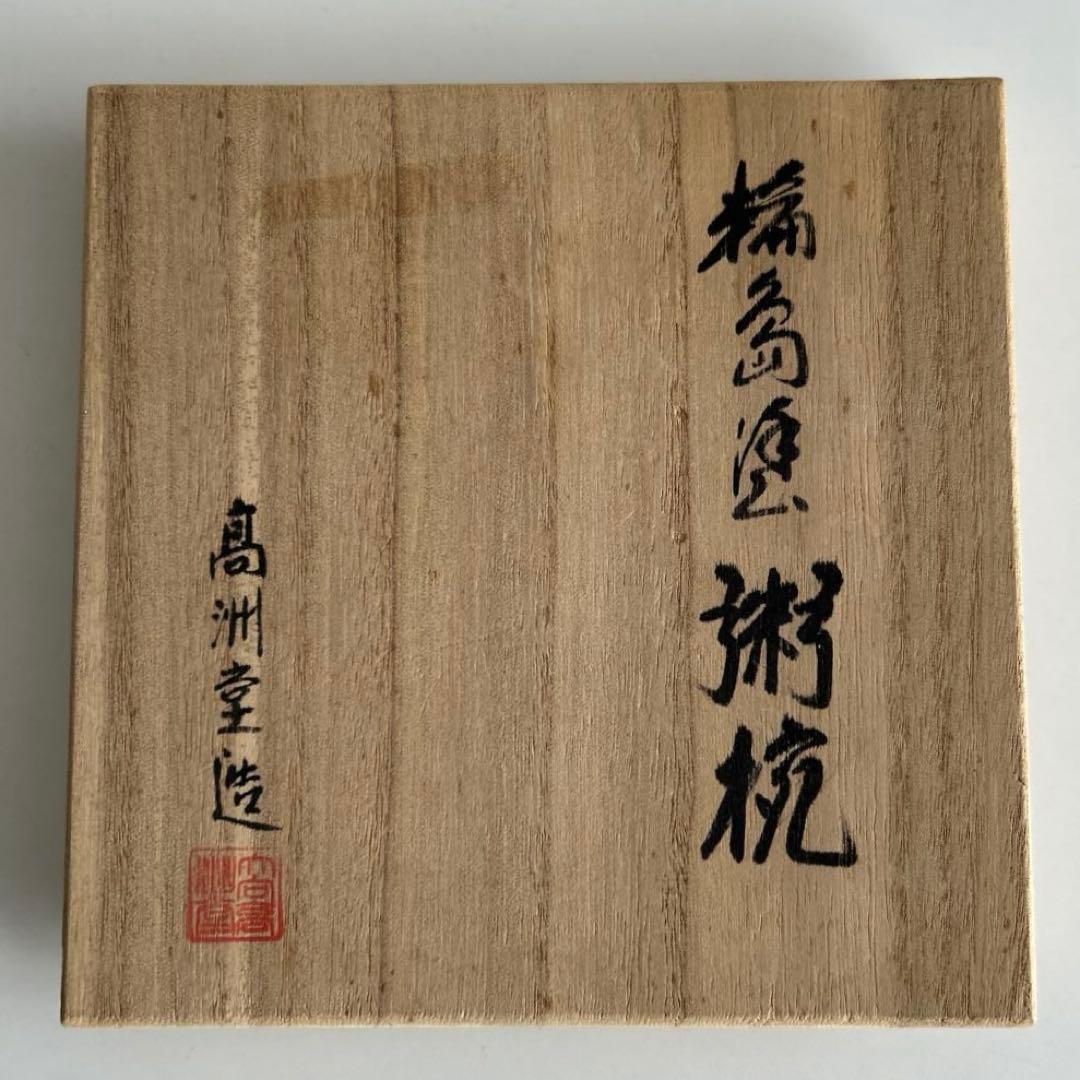 輪島塗 粥椀
髙洲堂造